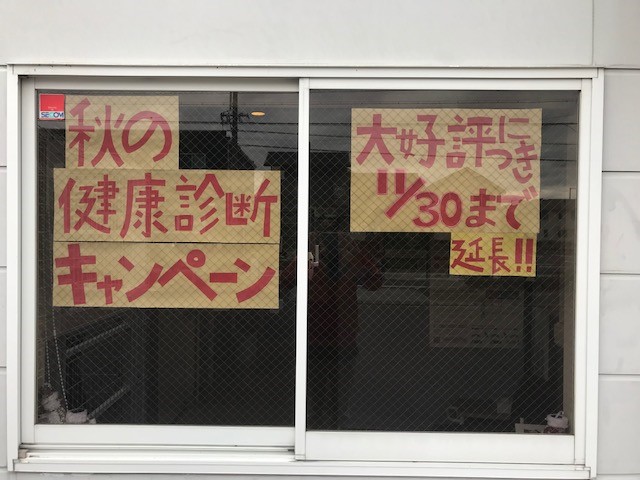 SECOM
秋の
健康診断
キャンペーン
大好評につき
11/30まで
延長!!